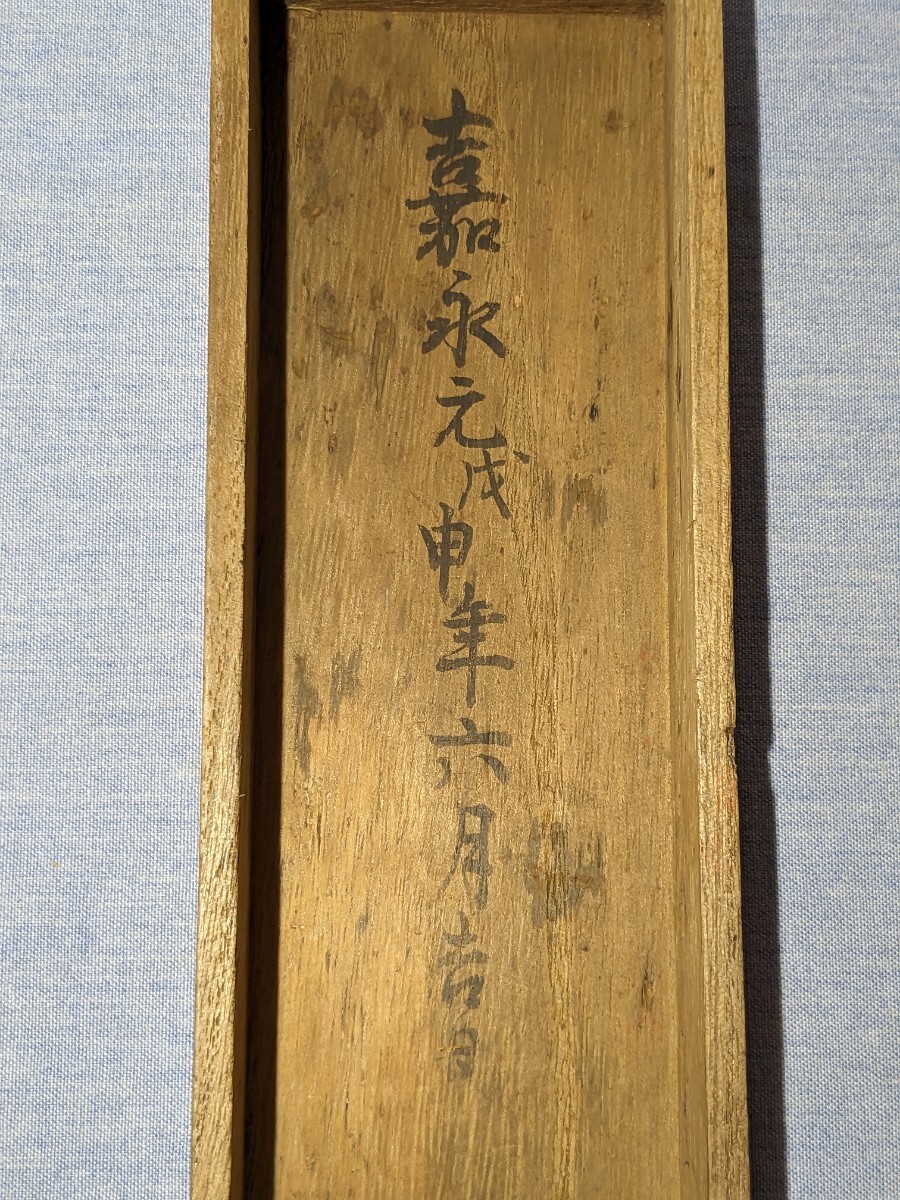 嘉永元戊申年六月吉日